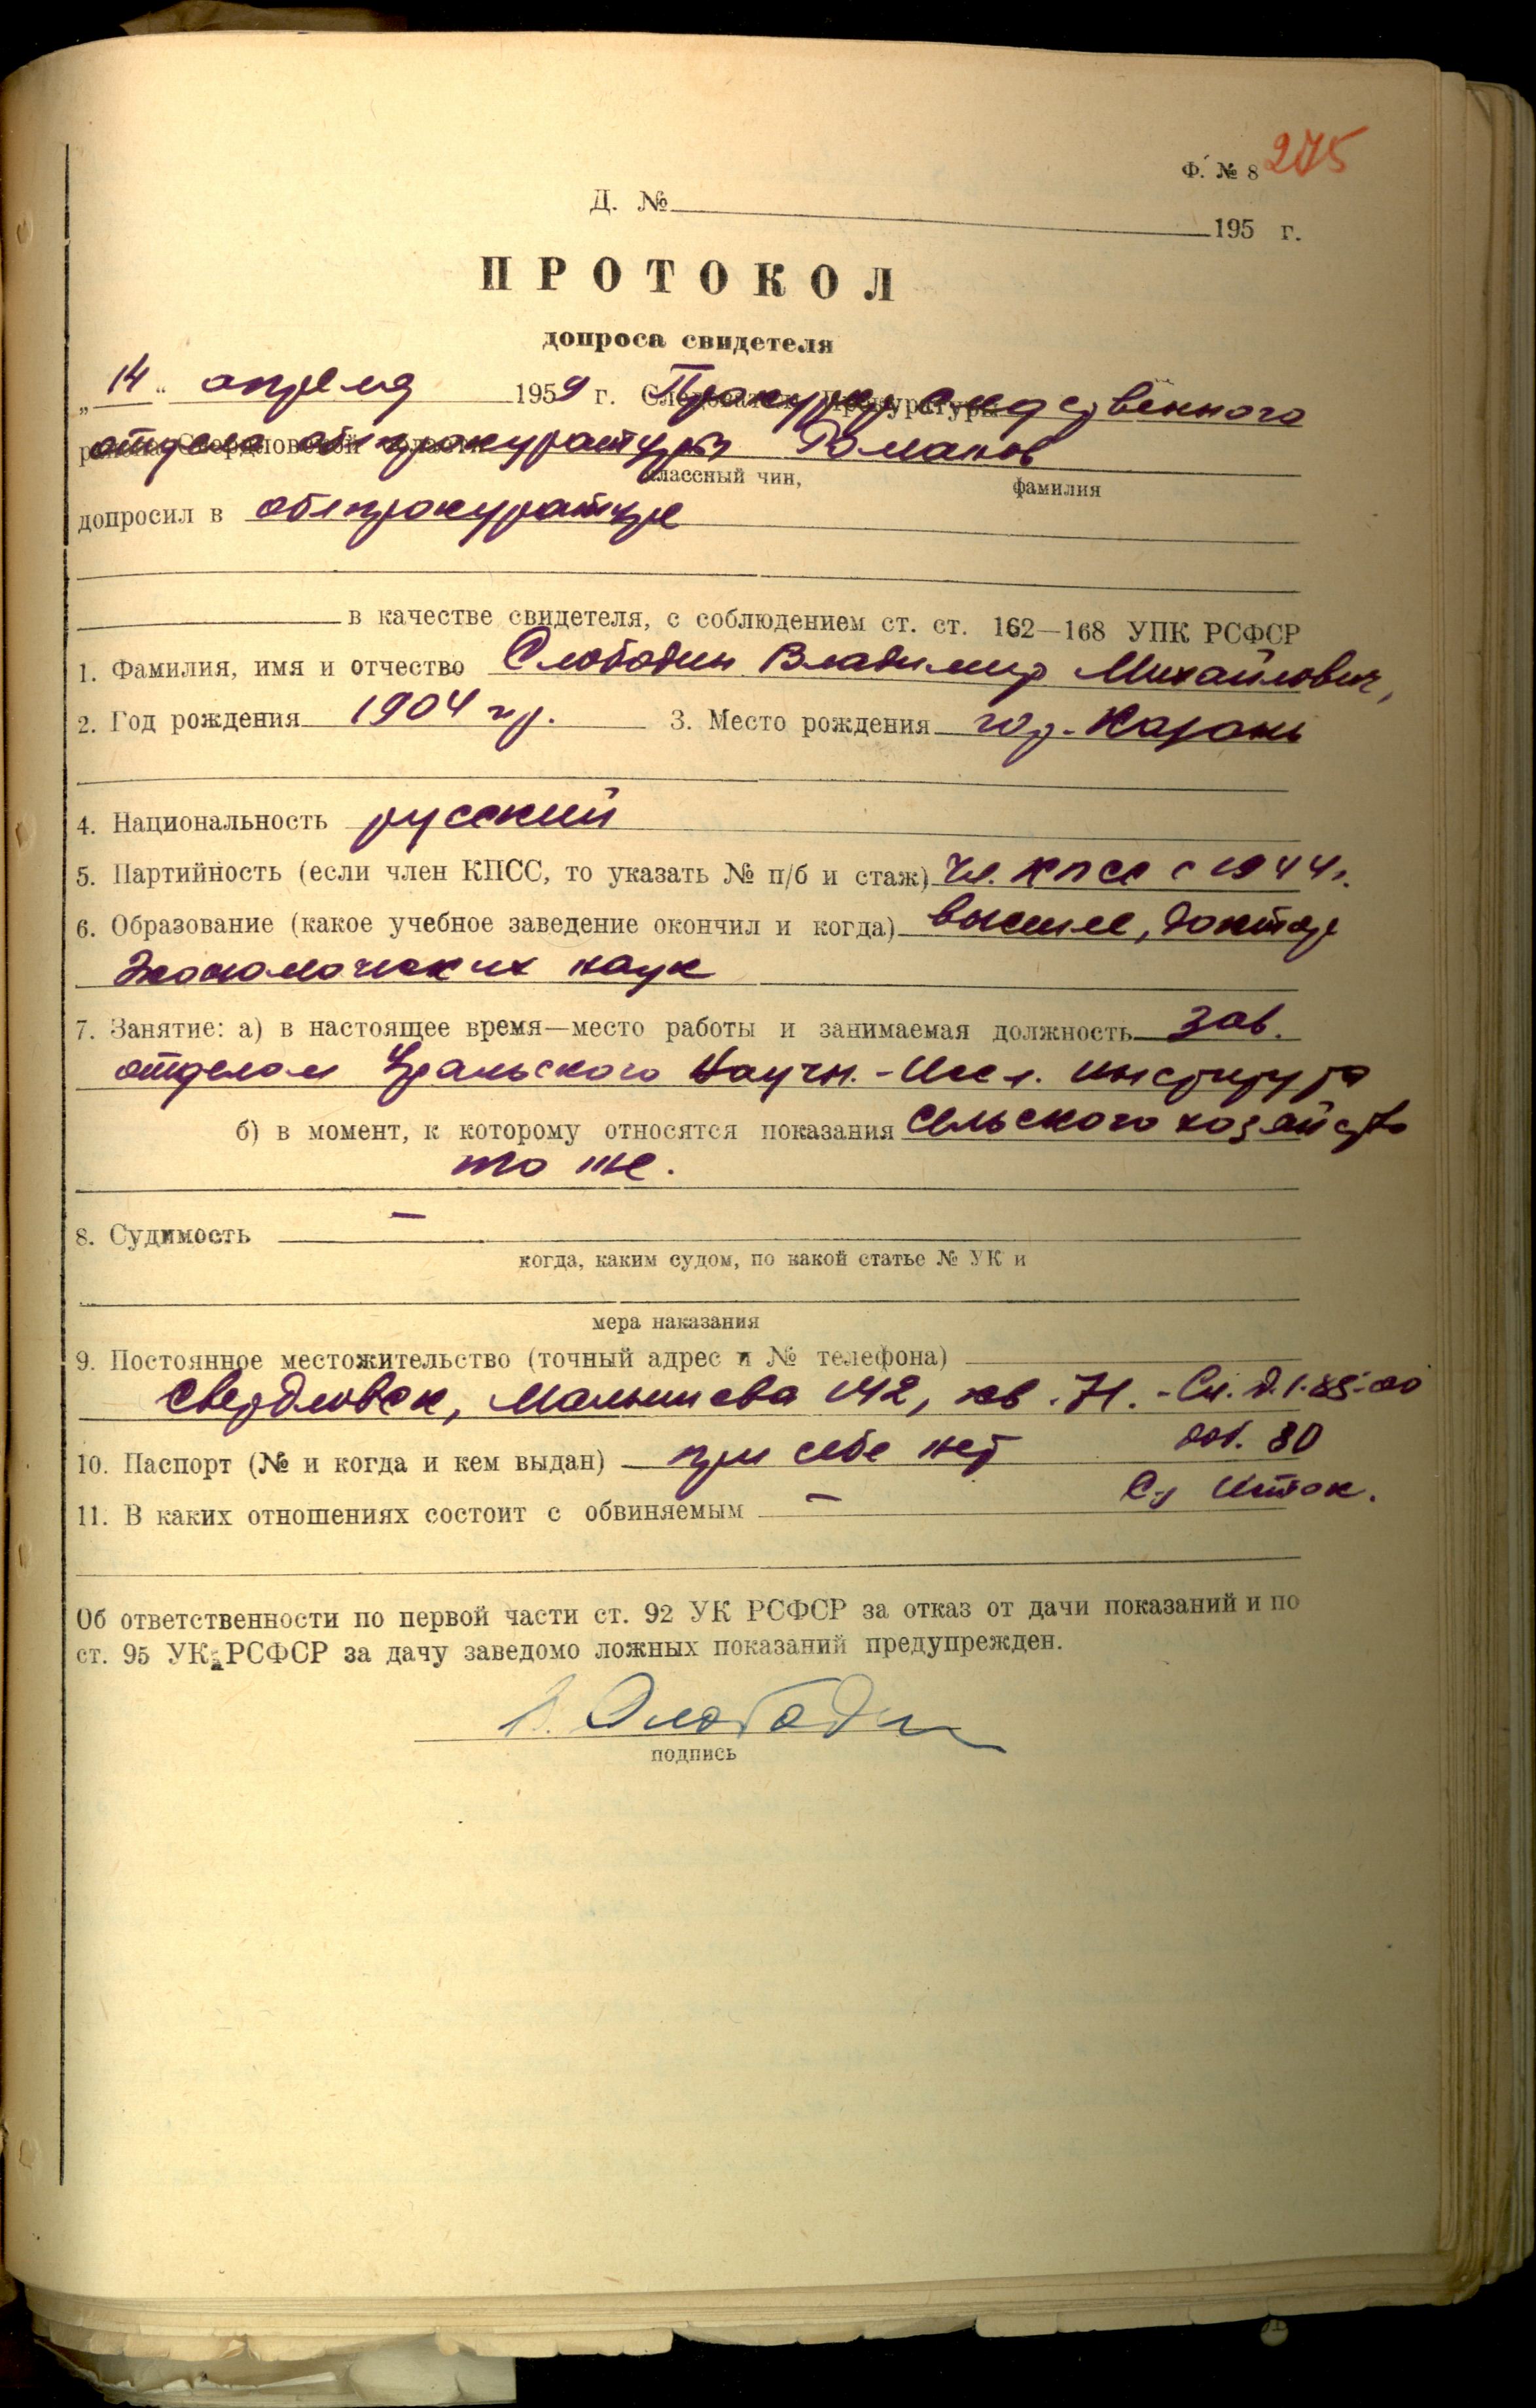 Ф. № 8 275
Д. № 195 г.
ПРОТОКОЛ
допроса свидетеля
„14" апреля 1959 г. Прокурор следственного
отдела облпрокуратуры Романов
классный чин, фамилия
допросил в облпрокуратуре
в качестве свидетеля, с соблюдением ст. ст. 162—168 УПК РСФСР
1. Фамилия, имя и отчество Слободин Владимир Михайлович,
2. Год рождения 1904 гр. 3. Место рождения гор. Казань
4. Национальность русский
5. Партийность (если член КПСС, то указать № п/б и стаж) чл. КПСС с 1944 г.
6. Образование (какое учебное заведение окончил и когда) высшее, доктор
экономических наук
7. Занятие: а) в настоящее время—место работы и занимаемая должность зав.
отделом Уральского Научн.-Иссл. института
б) в момент, к которому относятся показания сельского хозяйства
то же.
8. Судимость —
когда, каким судом, по какой статье № УК и
мера наказания
9. Постоянное местожительство (точный адрес и № телефона)
Свердловск, Малышева 142, кв. 71. - Сл. Д.1-85-00
доб. 80
10. Паспорт (№ и когда и кем выдан) при себе нет
Исток.
11. В каких отношениях состоит с обвиняемым —
Об ответственности по первой части ст. 92 УК РСФСР за отказ от дачи показаний и по
ст. 95 УК РСФСР за дачу заведомо ложных показаний предупрежден.
В. Слободин
подпись